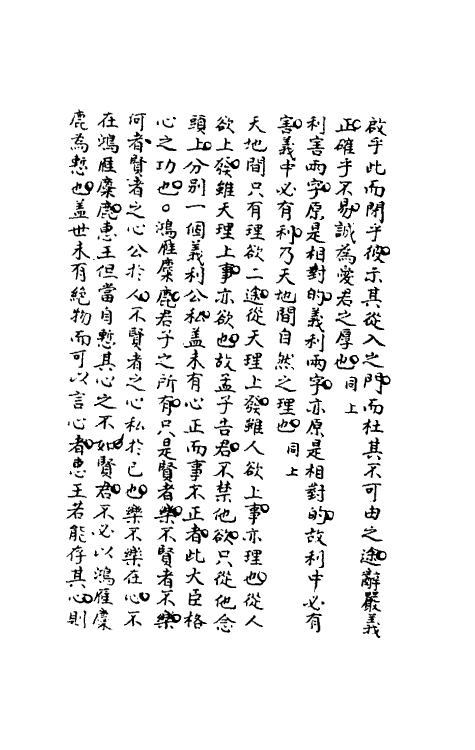 啟乎此而閉乎彼示其從入之門而杜其不可由之途辭嚴義
正確乎不易誠為愛君之厚也同上
利害兩字原是相對的義利兩字亦原是相對的故利中必有
害義中必有利乃天地間自然之理也同上
天地間只有理欲二途從天理上發雖人欲上事亦理也從人
欲上發雖天理上事亦欲也故孟子告君不禁他欲只從他念
頭上分別一個義利公私盖未有心正而事不正者此大臣格
心之功也○鴻雁麋鹿君子之所有只是賢者樂不賢者不樂
何者賢者之心公於人不賢者之心私於己也樂不樂在心不
在鴻雁麋鹿惠王但當自慙其心之不如賢君不必以鴻雁麋
鹿為慙也盖世未有絕物而可以言心者惠王若能存其心則